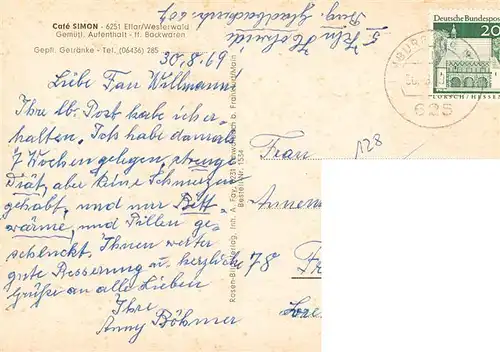 Café SIMON - 6251 Ellar/Westerwald
Gemütl. Aufenthalt - ff. Backwaren
Gepfl. Getränke - Tel. (06436) 285
30.8.69
Liebe Frau Willmann!
Ihre lb. Post habe ich er-
halten. Ich habe damals
7 Wochen gelegen, strenge
Diät, aber keine Schmerzen
gehabt, und nur Bett
wärme, und Pillen ge-
schluckt. Ihnen weiter
gute Besserung u. herzliche
Grüße an alle Lieben
Ihre
Anny Böhmer
Rosen-Bild-Verlag, Inh. A. Fay, 6231 b. Frankfurt/Main
Bestell Nr. 1534
5 Köln
Deutsche Bundespost
20
LORSCH/HESSEN
625
128
Frau
78